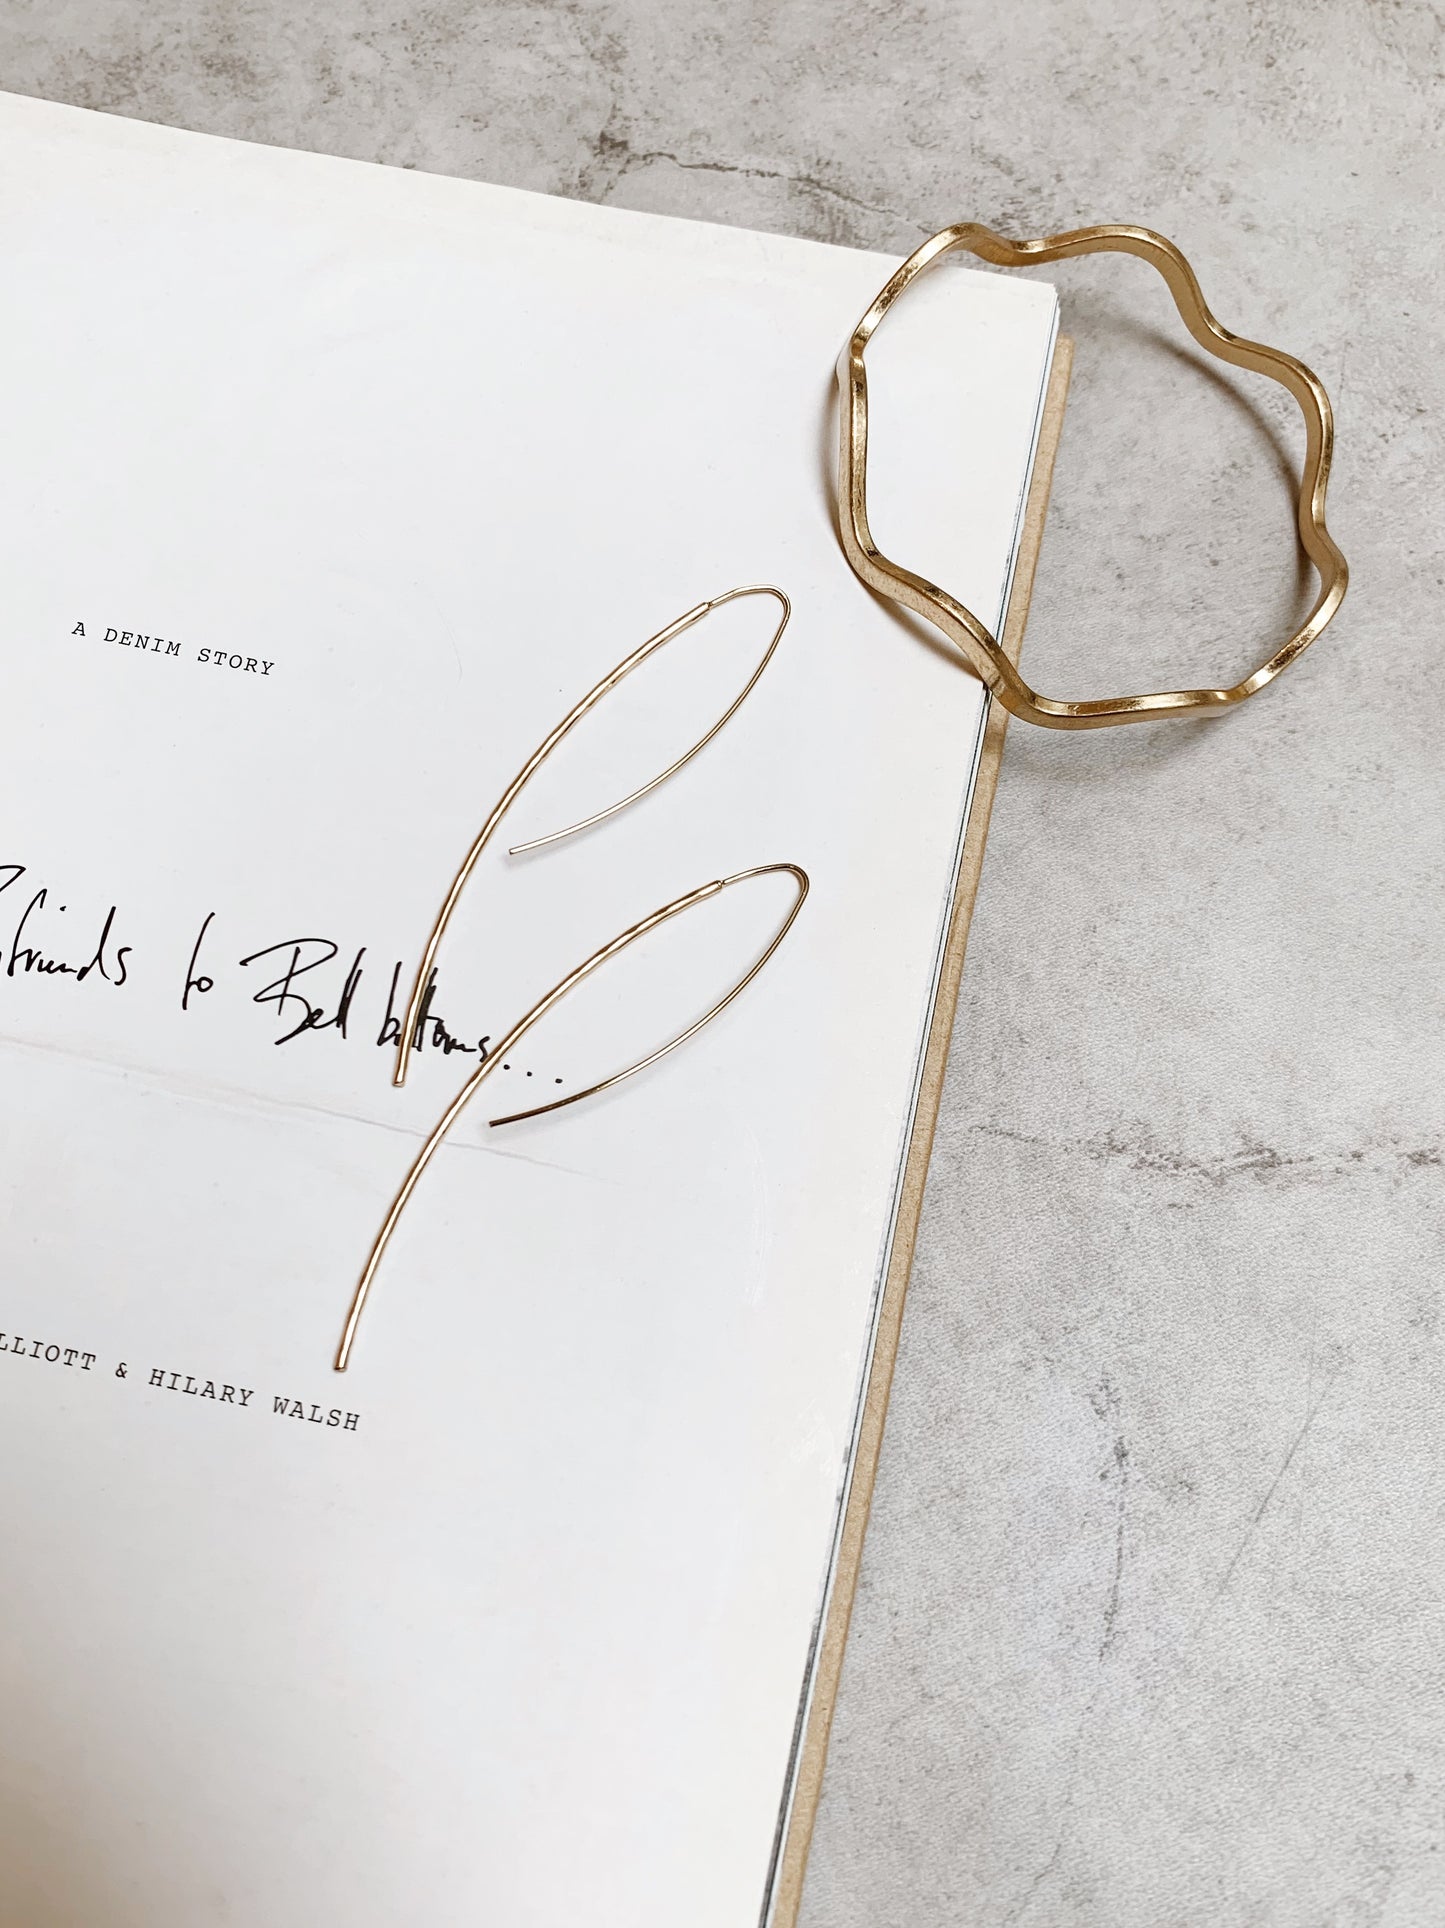 A DENIM STORY
friends to Bell bottoms...
LLIOTT & HILARY WALSH